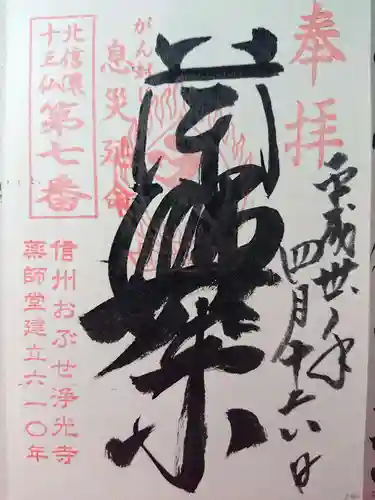 奉拝
平成卅年
四月十六日
がん封
息災延命
北信濃
十三仏
第七番
信州おぶせ浄光寺
薬師堂建立六一〇年